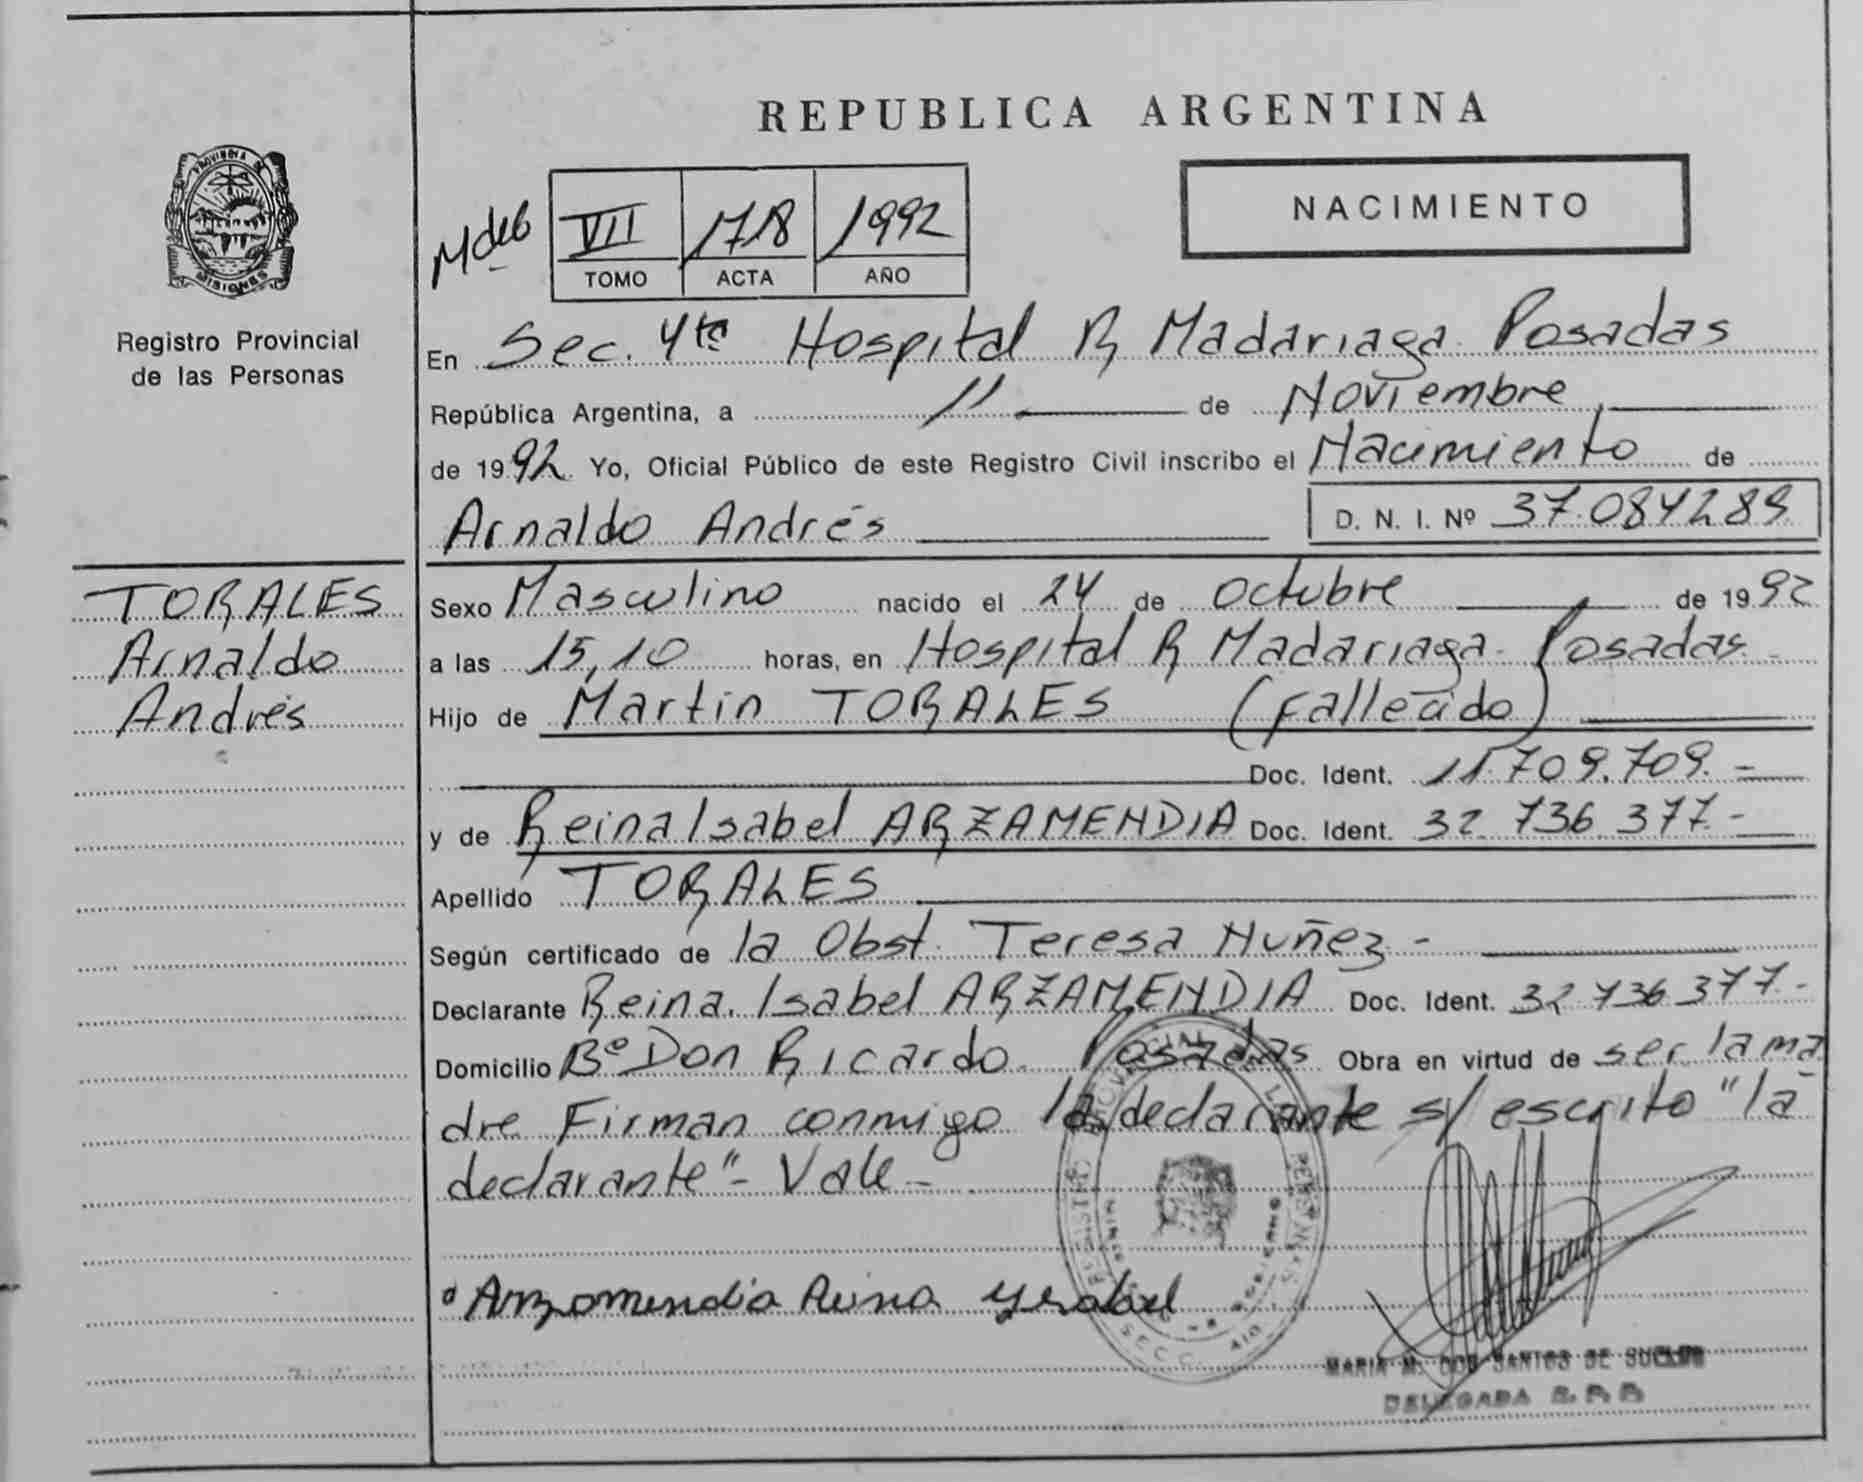 REPUBLICA ARGENTINA
PROVINCIA DE
MISIONES
Registro Provincial
de las Personas
VII 1718 1992
TOMO ACTA AÑO
NACIMIENTO
En Sec. 4ta Hospital R Madariaga Posadas
República Argentina, a 11 de Noviembre
de 1992 Yo, Oficial Público de este Registro Civil inscribo el Nacimiento de
Arnaldo Andrés D. N. I. Nº 37.084289
TORALES
Arnaldo
Andrés
Sexo Masculino nacido el 24 de Octubre de 1992
a las 15,10 horas, en Hospital R Madariaga - Posadas -
Hijo de Martin TORALES (fallecido)
Doc. Ident. 11.709.709. -
y de Reina Isabel ARZAMENDIA Doc. Ident. 32 736 377. -
Apellido TORALES
Según certificado de la Obst. Teresa Nuñez -
Declarante Reina. Isabel ARZAMENDIA Doc. Ident. 32 736 377. -
Domicilio Bº Don Ricardo. Posadas Obra en virtud de ser la ma
dre Firman conmigo la declarante s/ escrito "la
declarante" - Vale -
Arzamendia Reina Ysabel
MARIA M. DOS SANTOS DE
DELEGADA